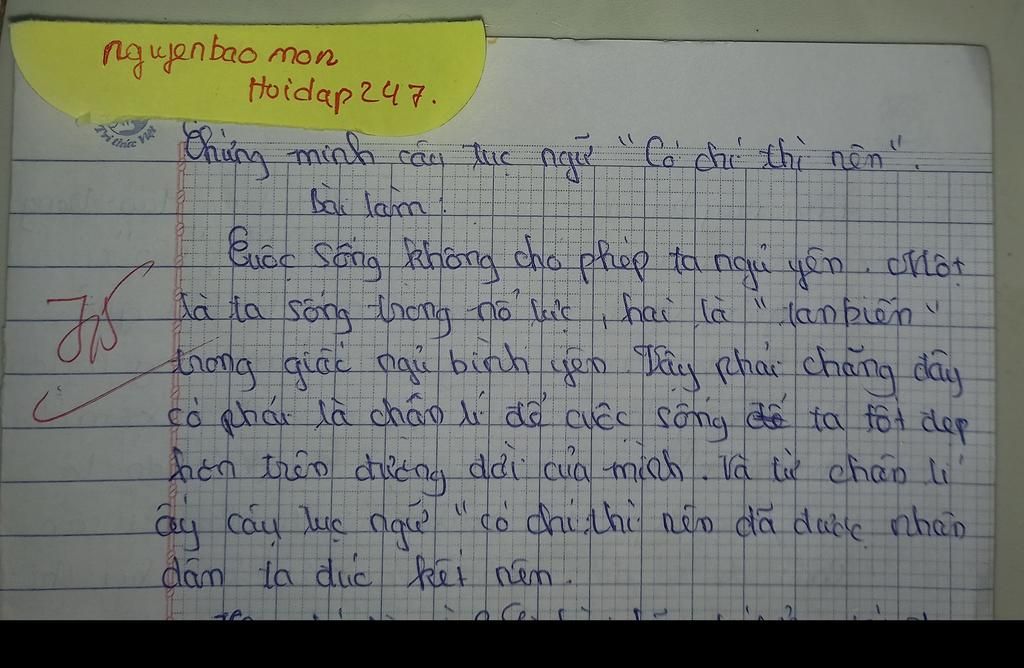 nguyenbao mon
Hoidap247.
Trí thức Việt
Chứng minh câu tục ngữ "Có chí thì nên".
bài làm:
Cuộc sống không cho phép ta ngủ yên. Một
là ta sống trong nổ lực, hai là "tan biến"
trong giấc ngủ bình yên. Vậy phải chăng đây
có phải là chân lí để cuộc sống ta tốt đẹp
hơn trên đường đời của mình. Và từ chân lí
ấy câu tục ngữ "có chí thì nên đã được nhân
dân ta đúc kết nên.